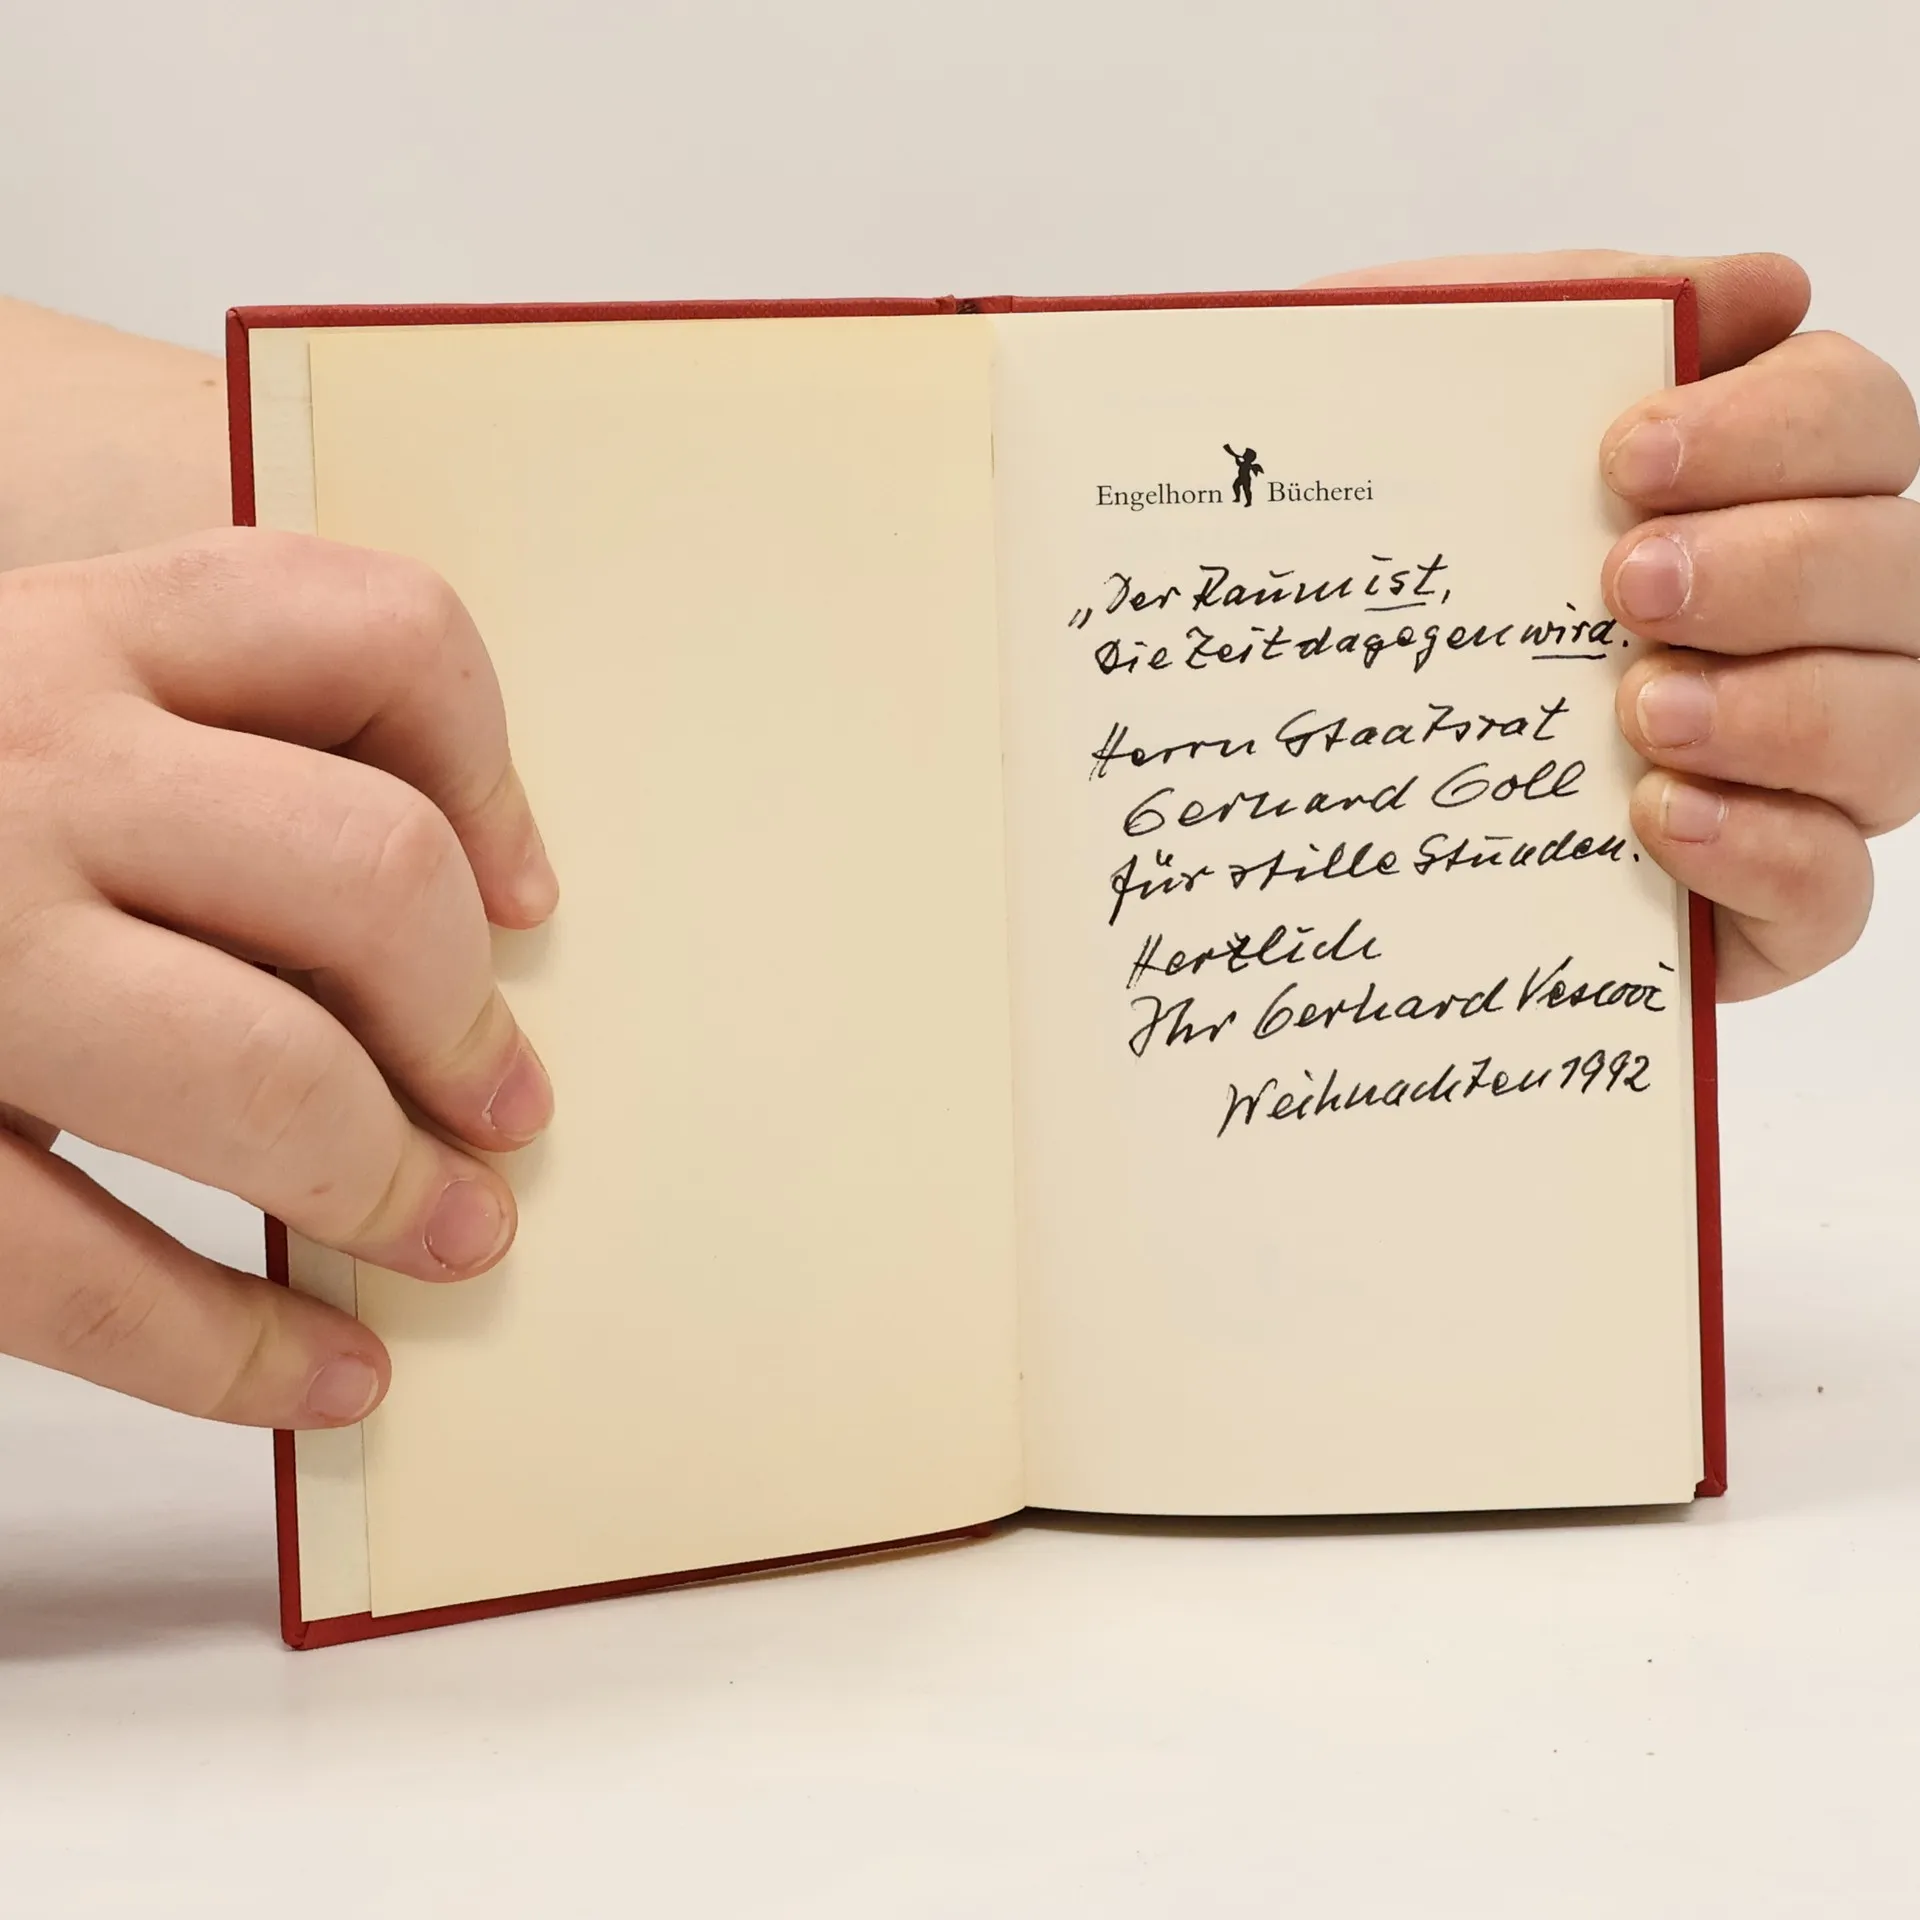 Engelhorn Bücherei
„Der Raum ist,
Die Zeit dagegen wird.
Herrn Staatsrat
Gerhard Goll
für stille Stunden.
Herzlich
Ihr Gerhard Vescovi
Weihnachten 1992